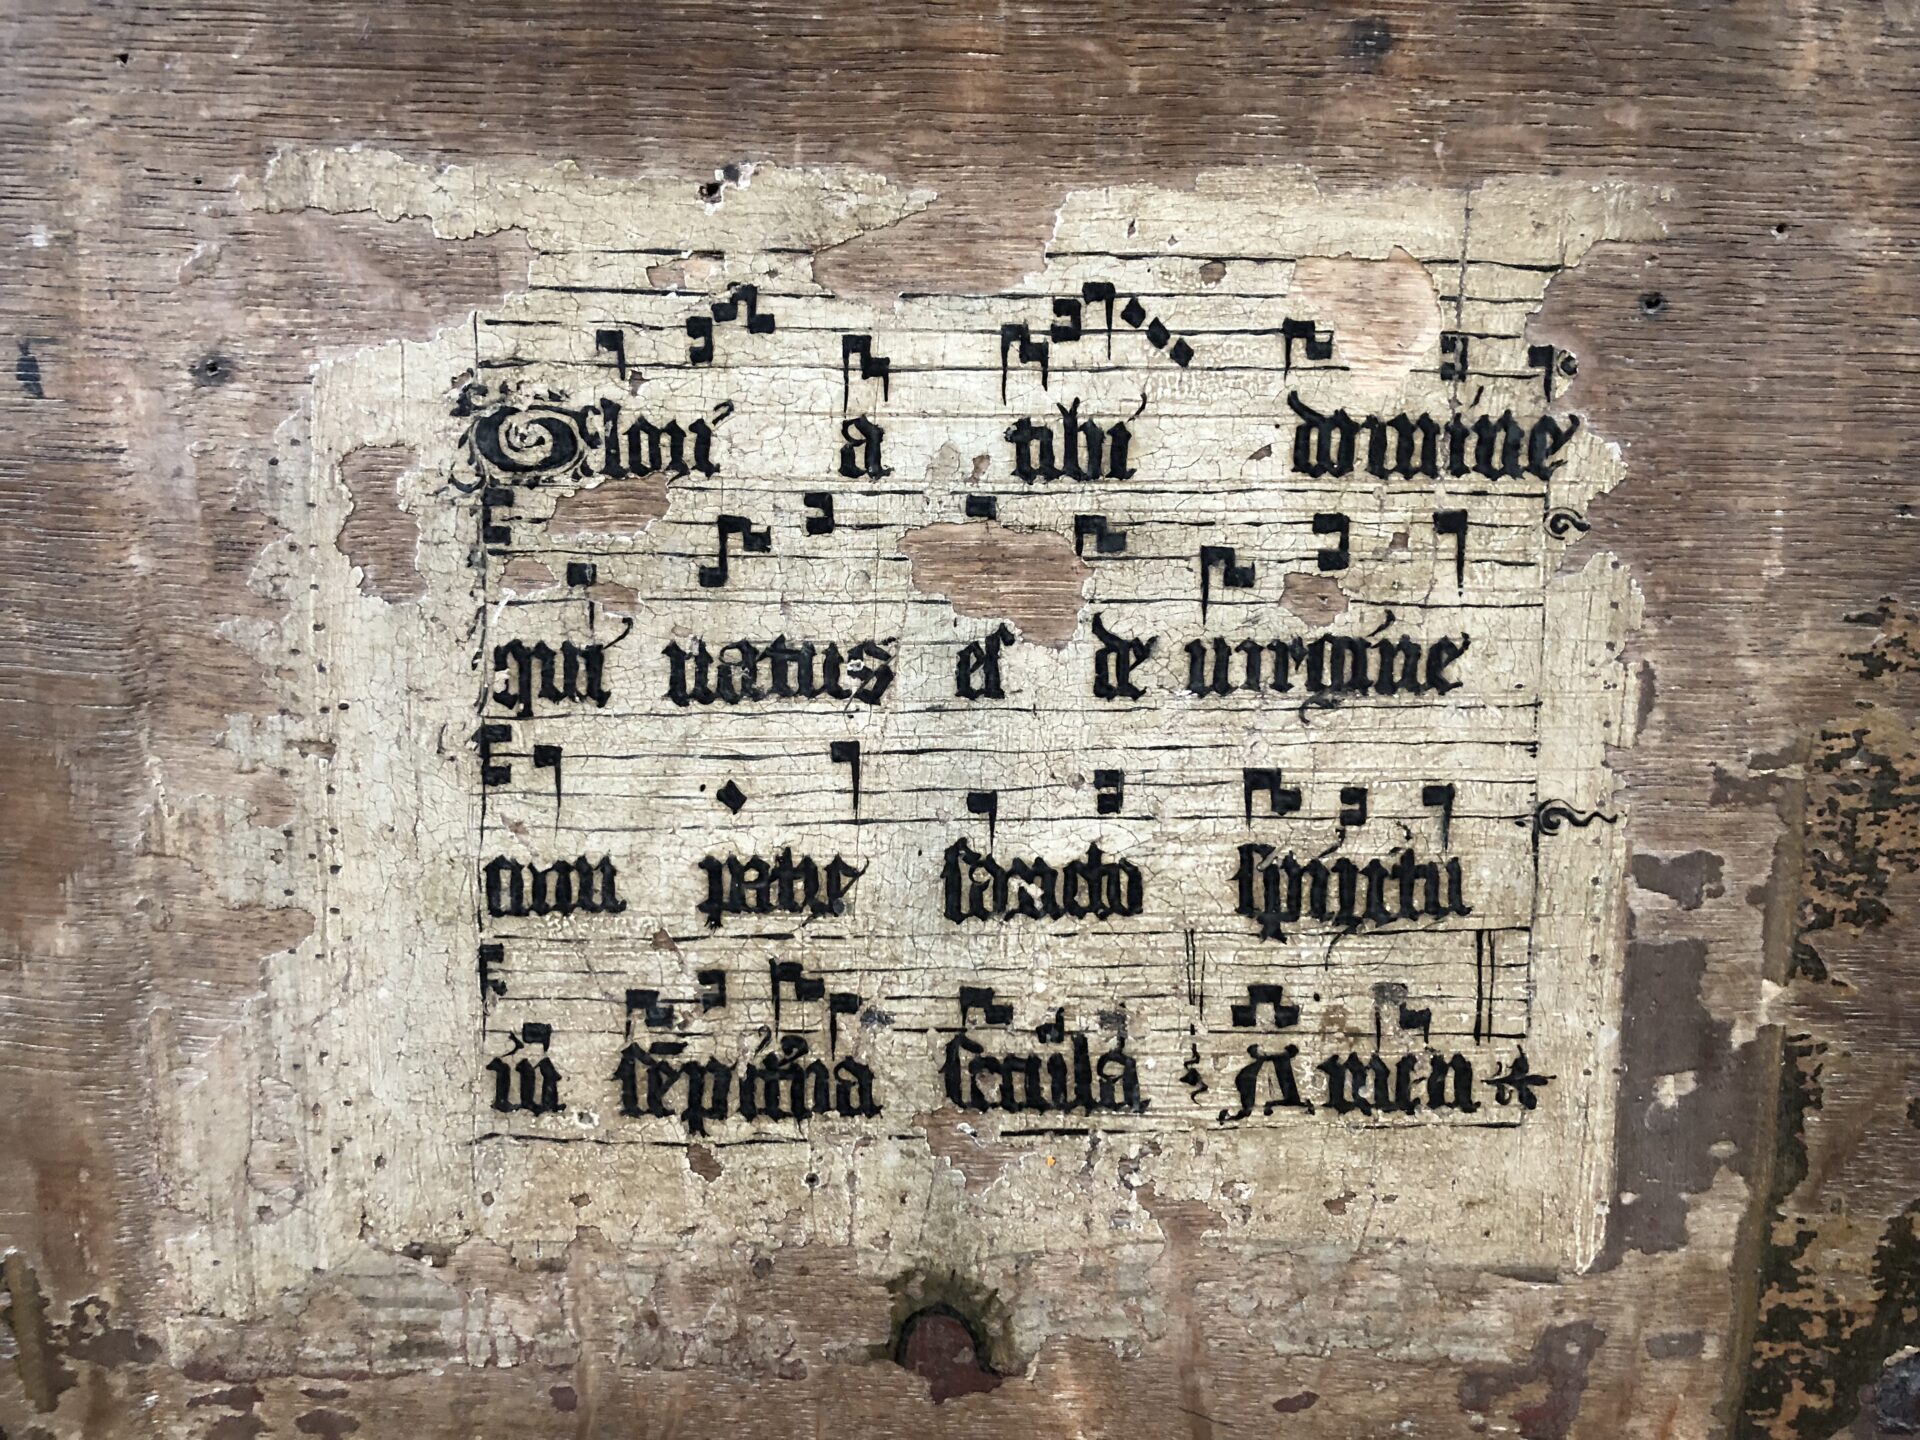 Glori a tibi domine
qui natus es de uirgine
cum patre sancto spiritu
in sēpit̾na secula Amen